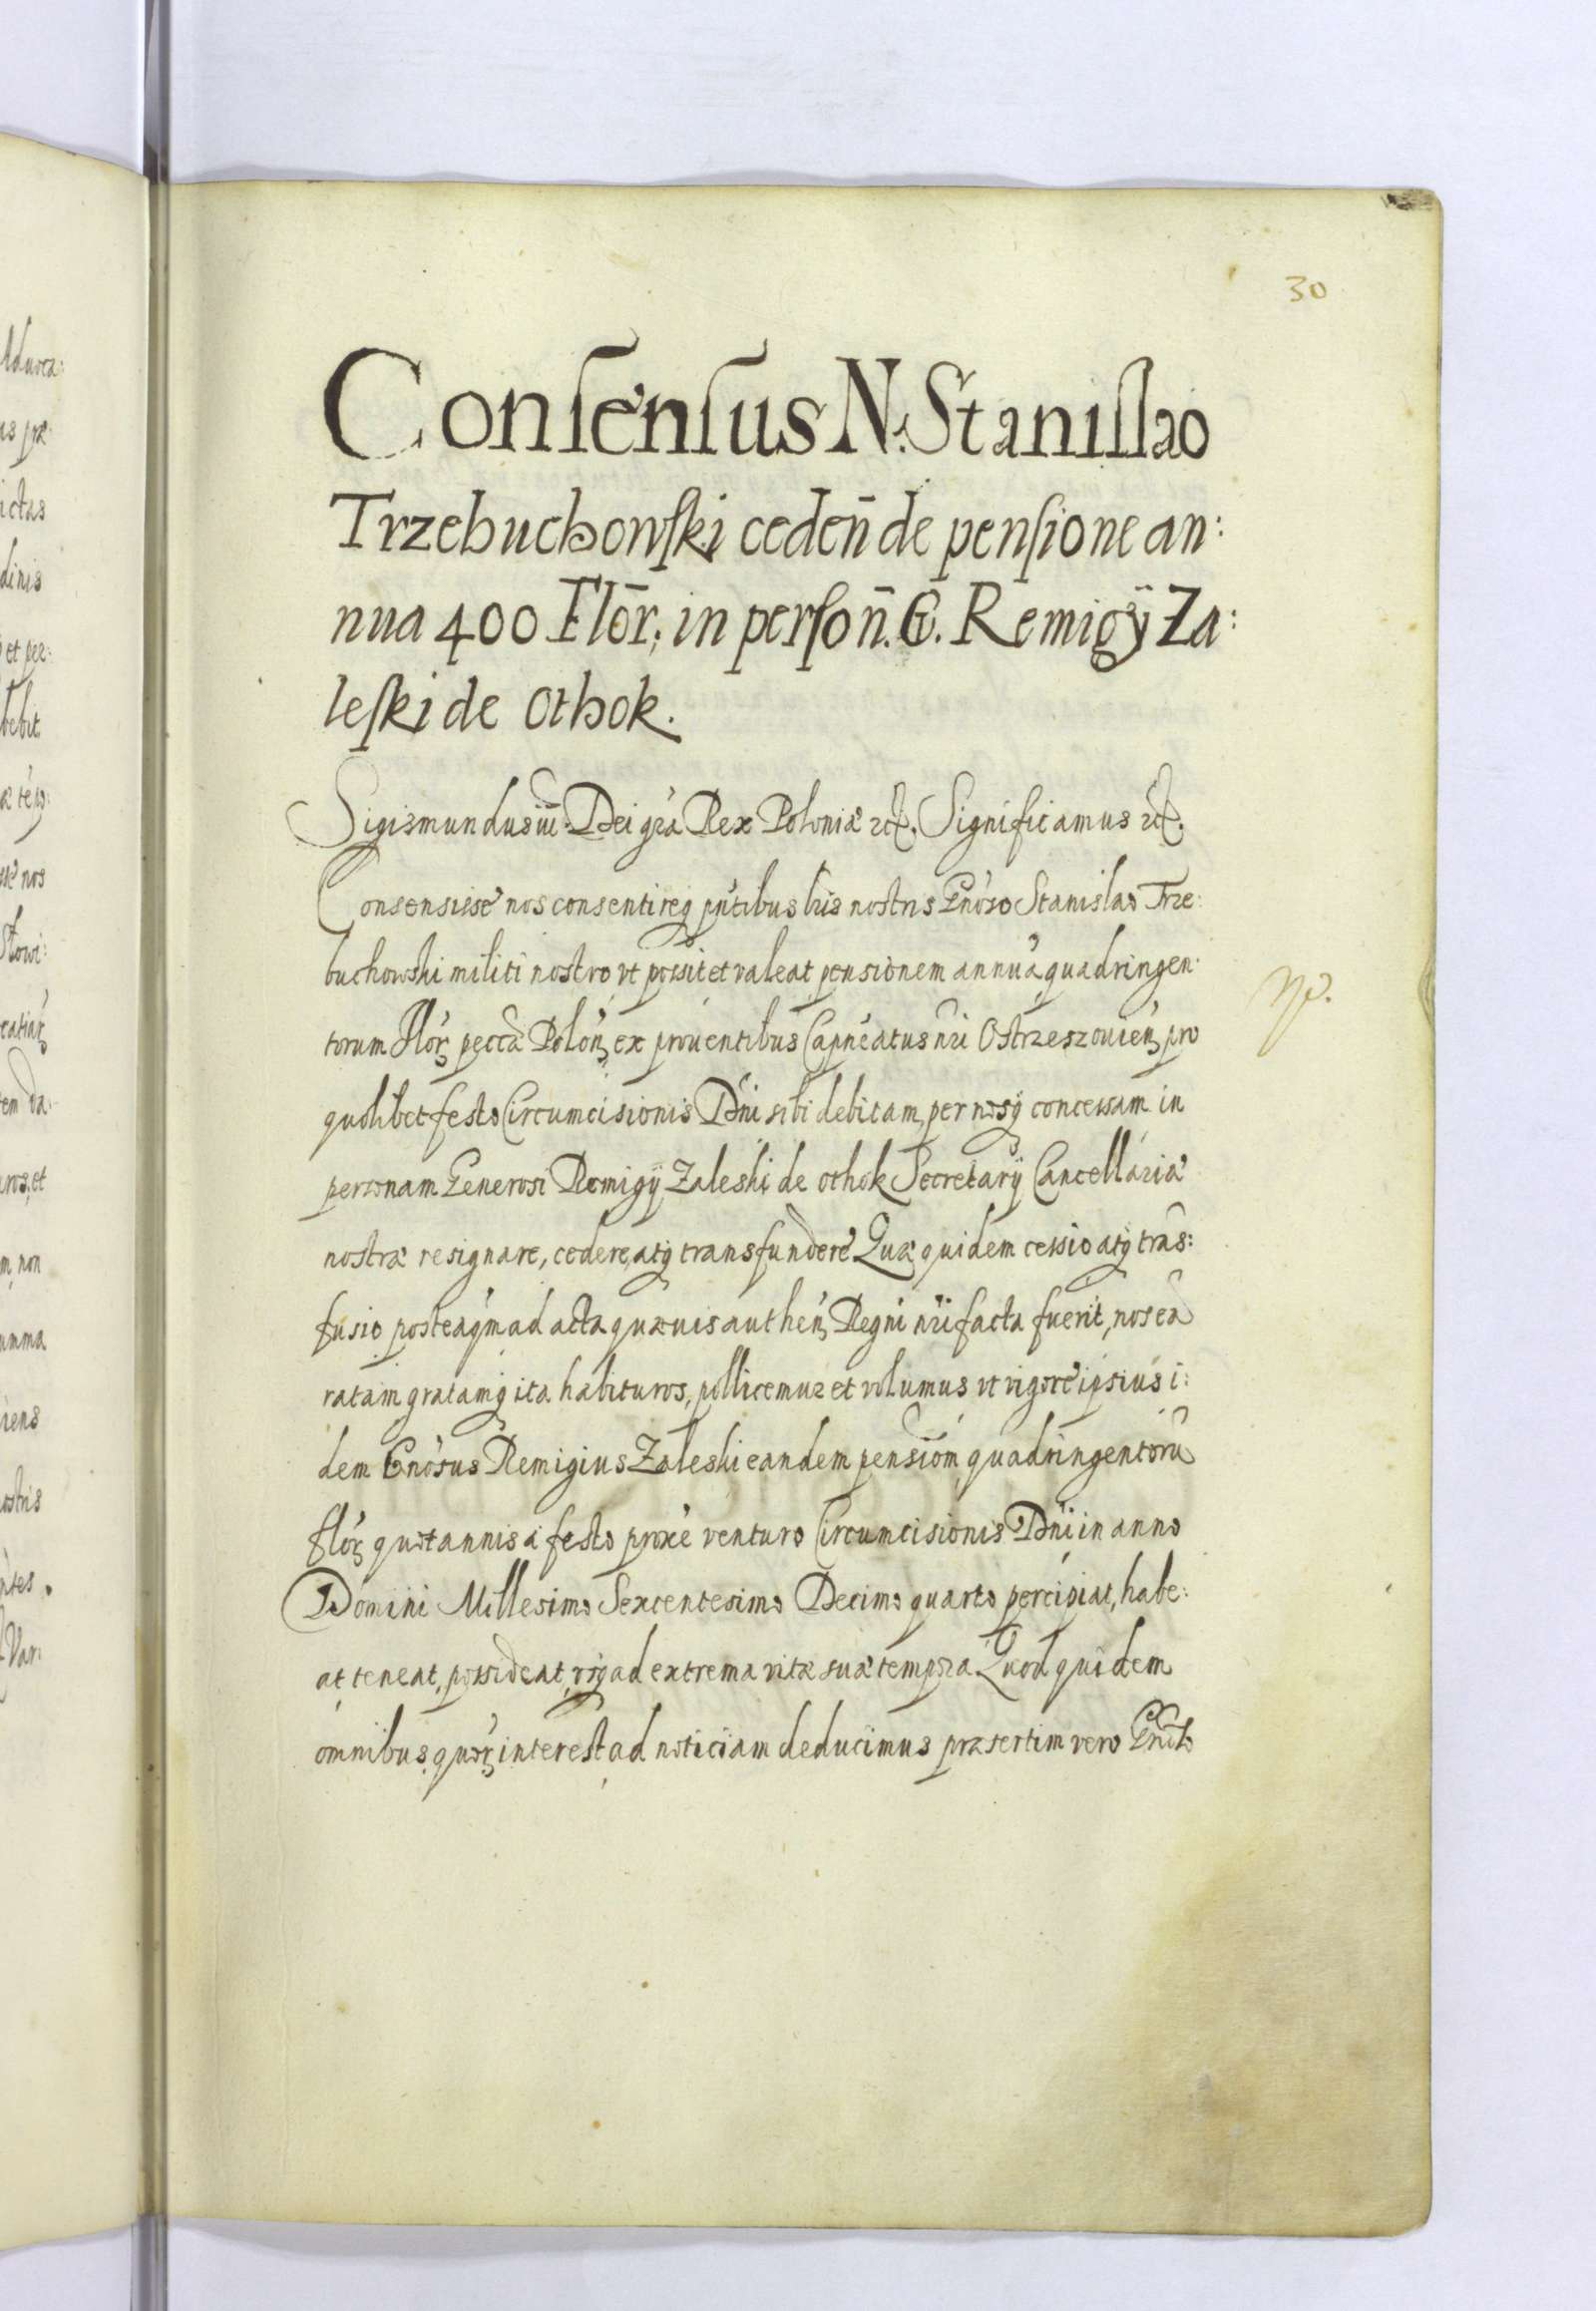 30
Consensus N. Stanislao
Trzebuchowski ceden̄ de pensione an:
nua 400 Flor̄: in person̄. G. Remigÿ Za:
leski de Othok.
Sigismundus iii. Dei gr̃a Rex Poloniæ etc. Significamus etc.
Consensisse nos consentireq́ pñtibus lris nostris Gñoso Stanislao Trze:
buchowski militi nostro vt possit et valeat pensionem annuã quadringen:
torum Flor̃ pecc̃a Polon̄ ex prouentibus Capñeatus nr̃i Ostrzeszouien̄ pro
quolibet festo Circumcisionis Dñi sibi debitam, per nosq́ concessam in
personam Generosi Remigÿ Zaleski de othok Secretarÿ Cancellariæ
nostræ resignare, cedere, atq́ transfundere Quæ quidem cessio atq́ trãs:
fusio posteaq̃m ad acta quæuis authen̄ Regni nr̃i facta fuerit, nos eã
ratam gratamq́ ita habituros, pollicemur et volumus vt vigore ipsius i:
dem Gñosus Remigius Zaleski eandem pensiom̃ quadringentorũ
flor̃ quotannis a festo proxe venturo Circumcisionis Dñi in anno
Domini Millesimo Sexcentesimo Decimo quarto percipiat, habe:
at teneat, possideat, vsq́ ad extrema vitæ suæ tempora Quod quidem
omnibus quor̃ interest ad noticiam deducimus præsertim vero